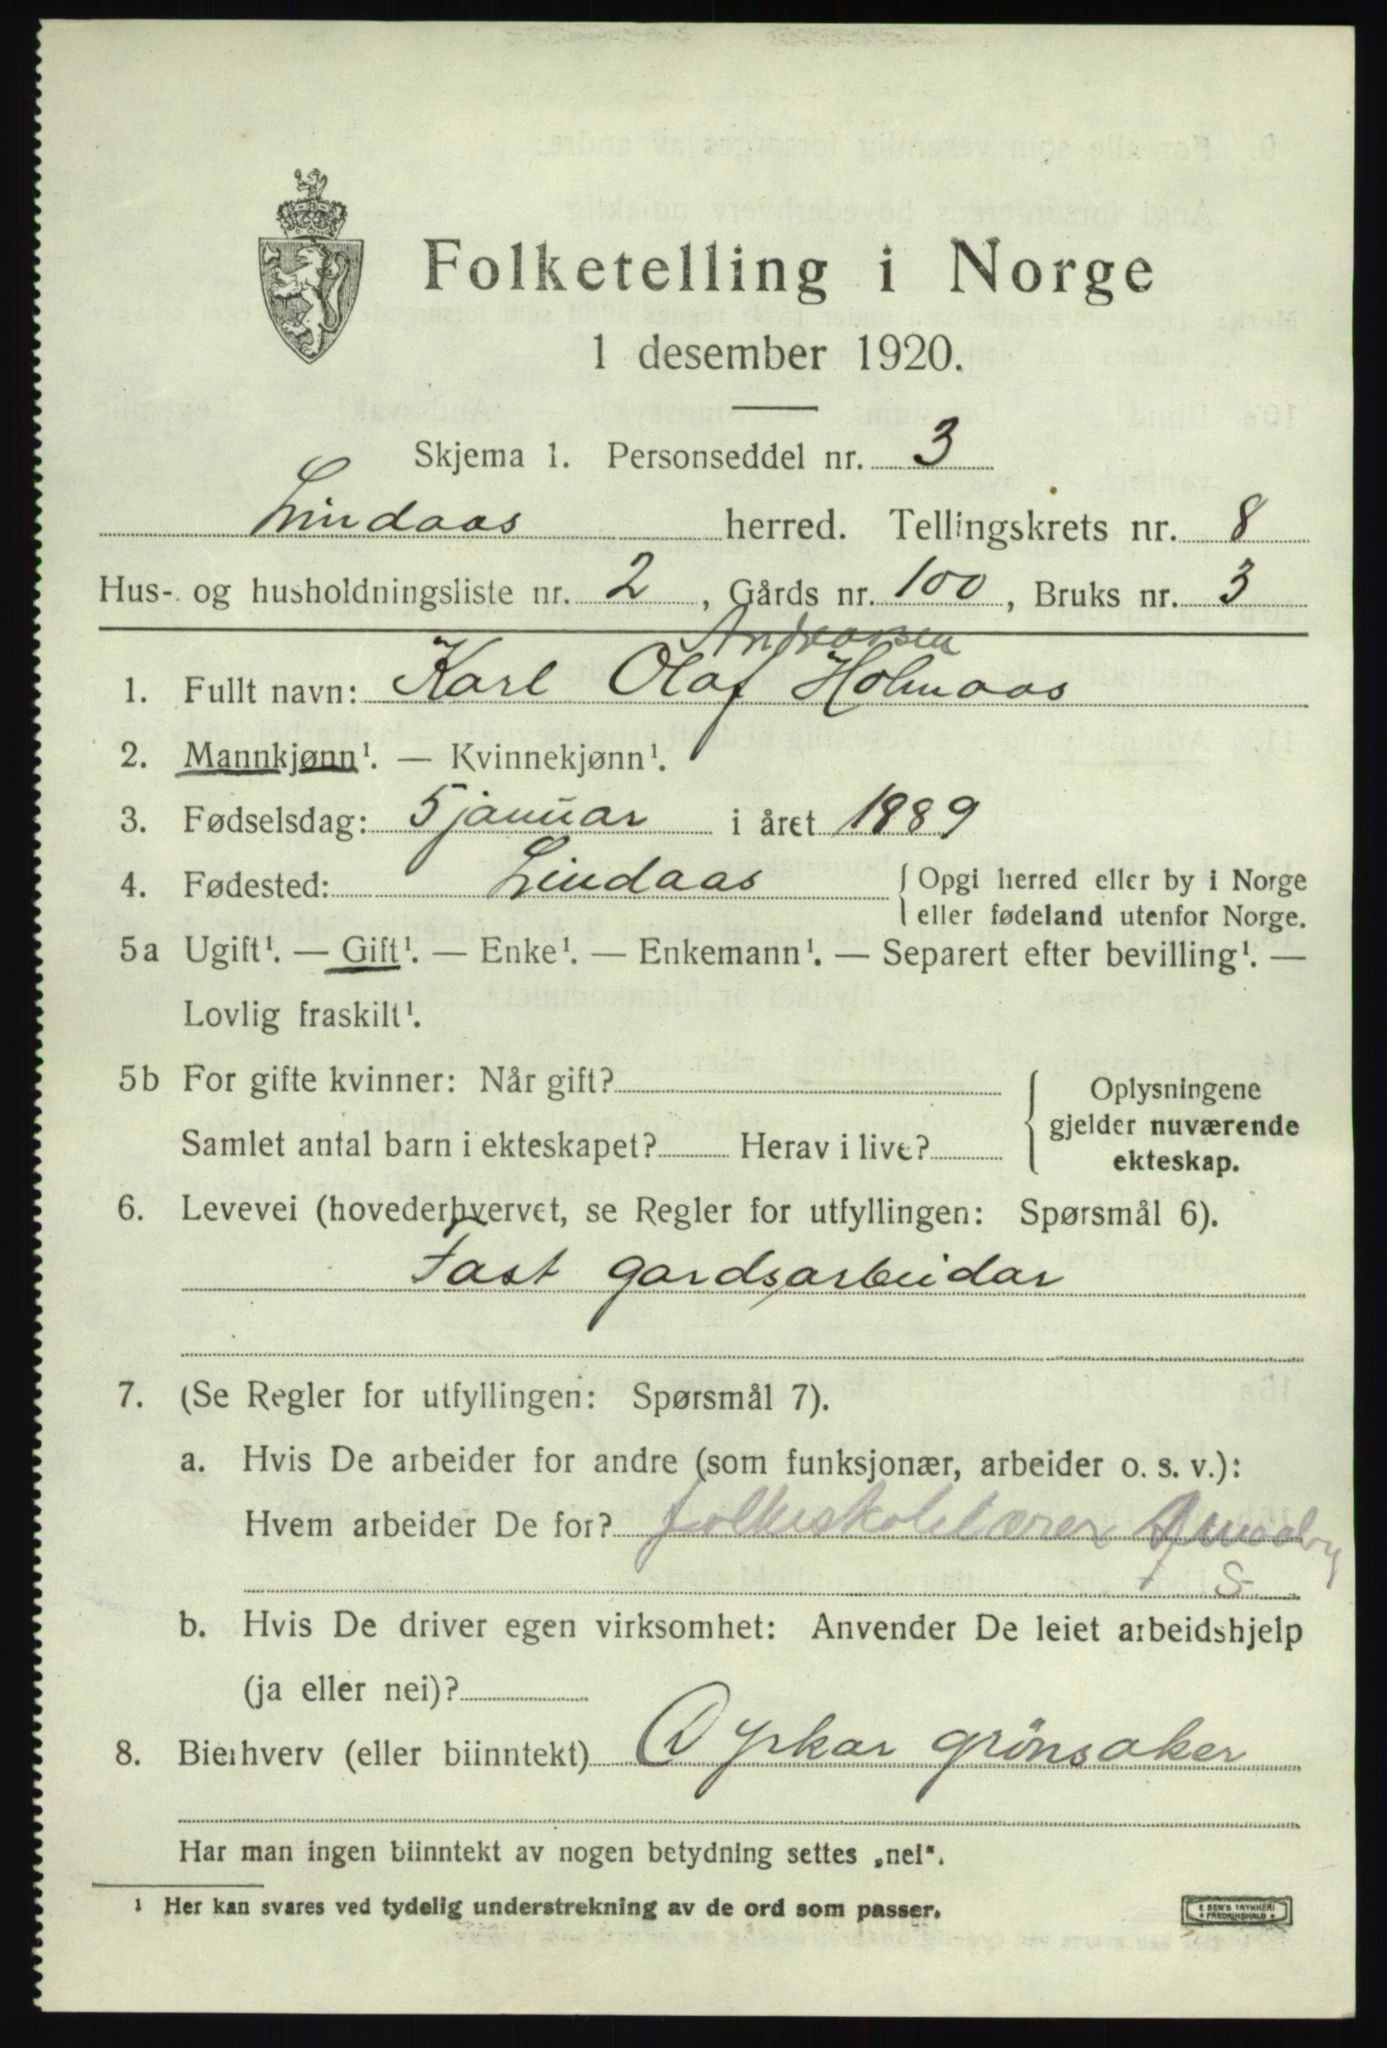 Folketelling i Norge
1 desember 1920.
Skjema 1. Personseddel nr. 3
Lindaas herred. Tellingskrets nr. 8
Hus- og husholdningsliste nr. 2, Gårds nr. 100, Bruks nr. 3
Andreassen
1. Fullt navn: Karl Olaf Holmaas
2. Mannkjønn¹. — Kvinnekjønn¹.
3. Fødselsdag: 5 januar i året 1889
4. Fødested: Lindaas { Opgi herred eller by i Norge
eller fødeland utenfor Norge.
5a Ugift¹. — Gift¹. — Enke¹. — Enkemann¹. — Separert efter bevilling¹. —
Lovlig fraskilt¹.
5b For gifte kvinner: Når gift? { Oplysningene
gjelder nuværende
Samlet antal barn i ekteskapet? Herav i live?
ekteskap.
6. Levevei (hovederhvervet, se Regler for utfyllingen: Spørsmål 6).
Fast gardsarbeidar
7. (Se Regler for utfyllingen: Spørsmål 7).
a. Hvis De arbeider for andre (som funksjonær, arbeider o. s. v.):
Hvem arbeider De for? folkeskolelærer
S
b. Hvis De driver egen virksomhet: Anvender De leiet arbeidshjelp
(ja eller nei)?
8. Bierhverv (eller biinntekt) Dyrkar grönsaker
Har man ingen biinntekt av nogen betydning settes „nei“.
¹ Her kan svares ved tydelig understrekning av de ord som passer.
E SEM'S TRYKKERI
FREDRIKSHALD